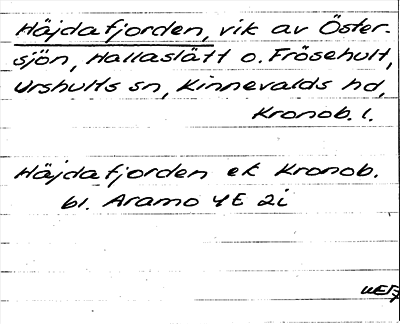 Höjdafjorden, vik av Öster-
sjön, Hallaslätt o. Frösehult,
Urshults sn, Kinnevalds hd,
Kronob. l.
Höjdafjorden ek Kronob.
bl. Aramo 4E 2i